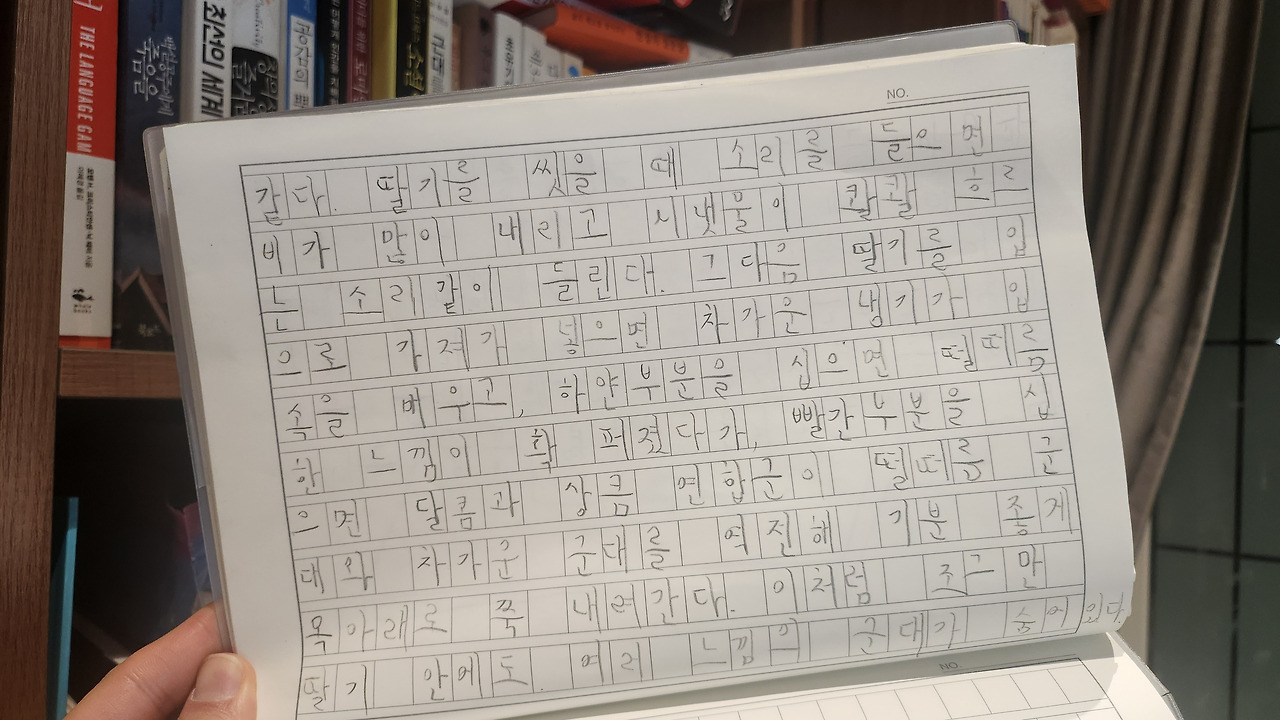 THE LANGUAGE GAM
최선의 세계
NO.
같다. 딸기를 씻을 때 소리를 들으면
비가 많이 내리고 시냇물이 콸콸 흐르
는 소리같이 들린다. 그다음 딸기를 입
으로 가져가 넣으면 차가운 냉기가 입
속을 메우고, 하얀부분을 씹으면 떨떠름
한 느낌이 확 퍼졌다가, 빨간부분을 씹
으면 달콤과 상큼 연합군이 떨떠름 군
대와 차가운 군대를 역진해 기분 좋게
목아래로 쭉 내려간다. 이처럼 조그만
딸기 안에도 여러 느낌의 군대가 숨어있다.
NO.